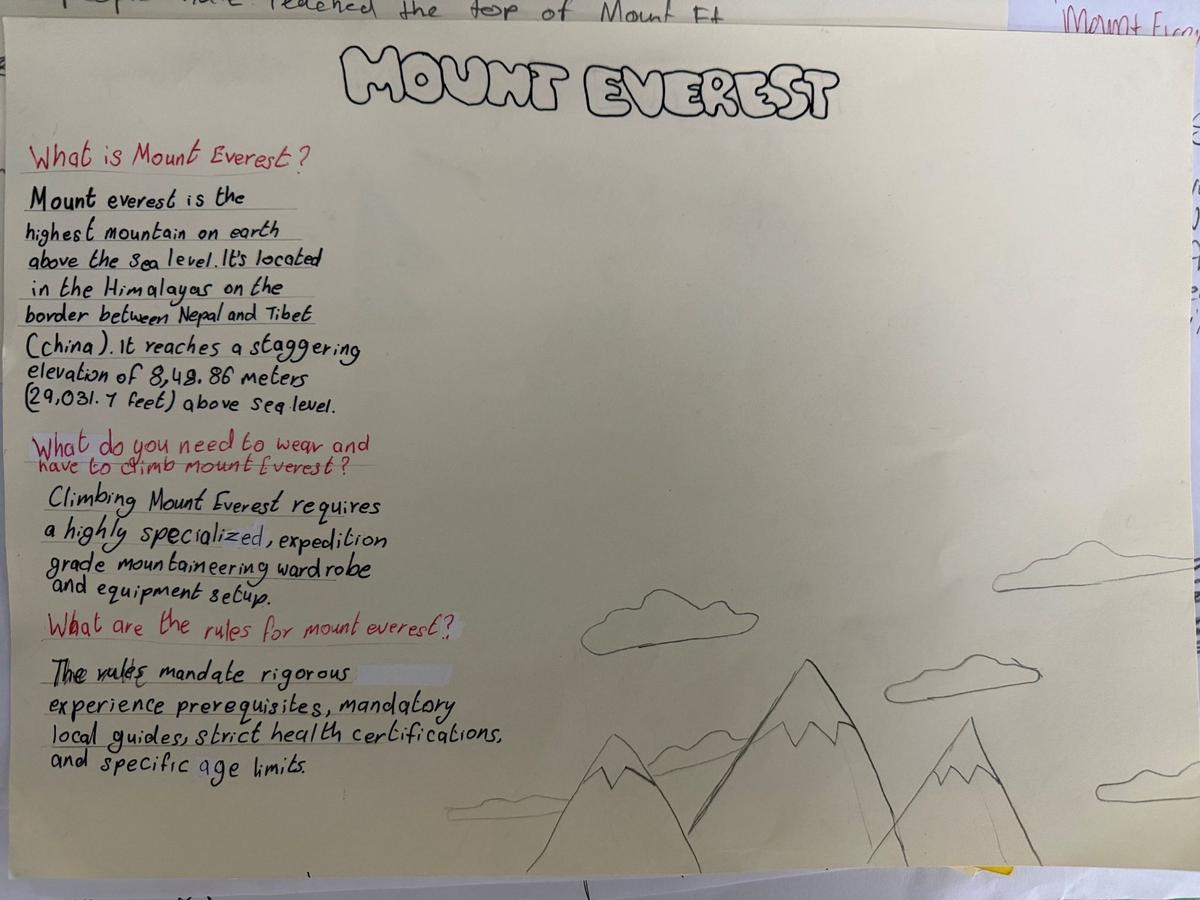 reached the top of Mount
Mount
MOUNT EVEREST
What is Mount Everest?
Mount everest is the
highest mountain on earth
above the sea level. It's located
in the Himalayas on the
border between Nepal and Tibet
(china). It reaches a staggering
elevation of 8,48.86 meters
(29,031.7 feet) above sea level.
What do you need to wear and
have to climb mount Everest?
Climbing Mount Everest requires
a highly specialized, expedition
grade mountaineering wardrobe
and equipment setup.
What are the rules for mount everest?
The rules mandate rigorous
experience prerequisites, mandatory
local guides, strict health certifications,
and specific age limits.